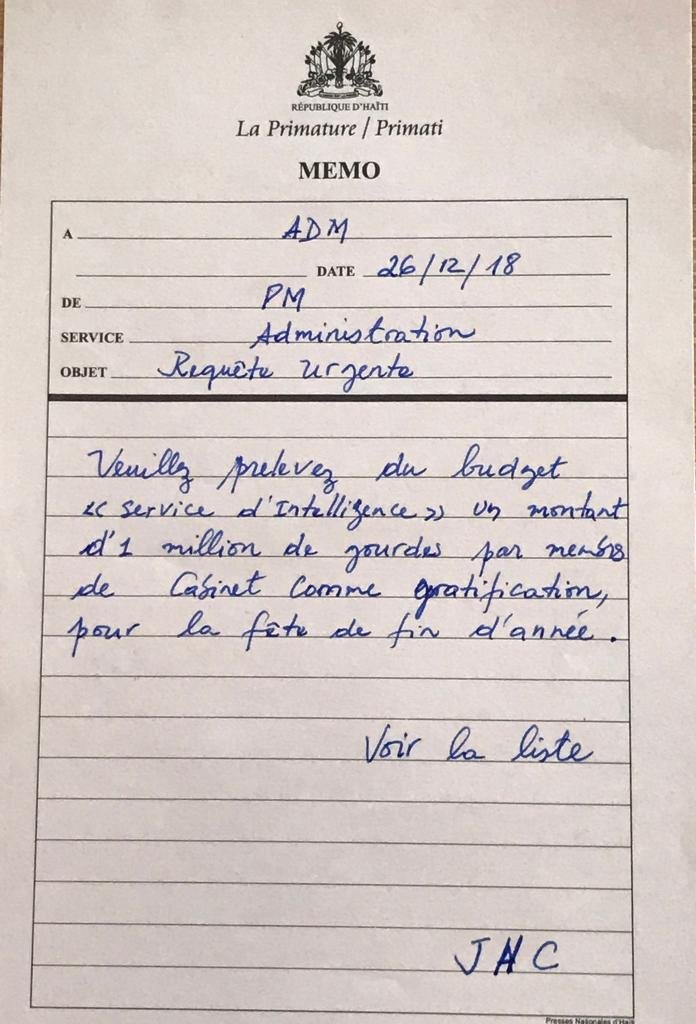 RÉPUBLIQUE D'HAÏTI
La Primature / Primati
MEMO
A ADM
DATE 26/12/18
DE PM
SERVICE Administration
OBJET Requête urgente
Veuillez prelevez du budget
<< service d'Intelligence >> un montant
d'1 million de gourdes par membre
de Cabinet comme gratification,
pour la fête de fin d'année.
Voir la liste
JHC
Presses Nationales d'Haïti